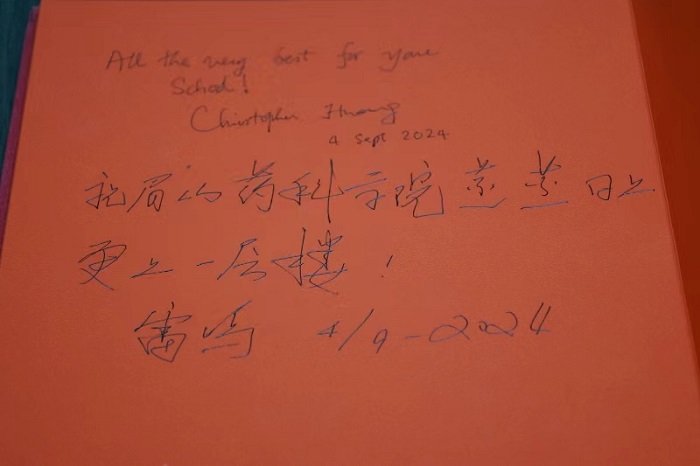 All the very best for your
School!
Christopher Huang
4 Sept 2024
祝眉山药科学院蒸蒸日上
更上一层楼!
雷鸣 4/9-2024